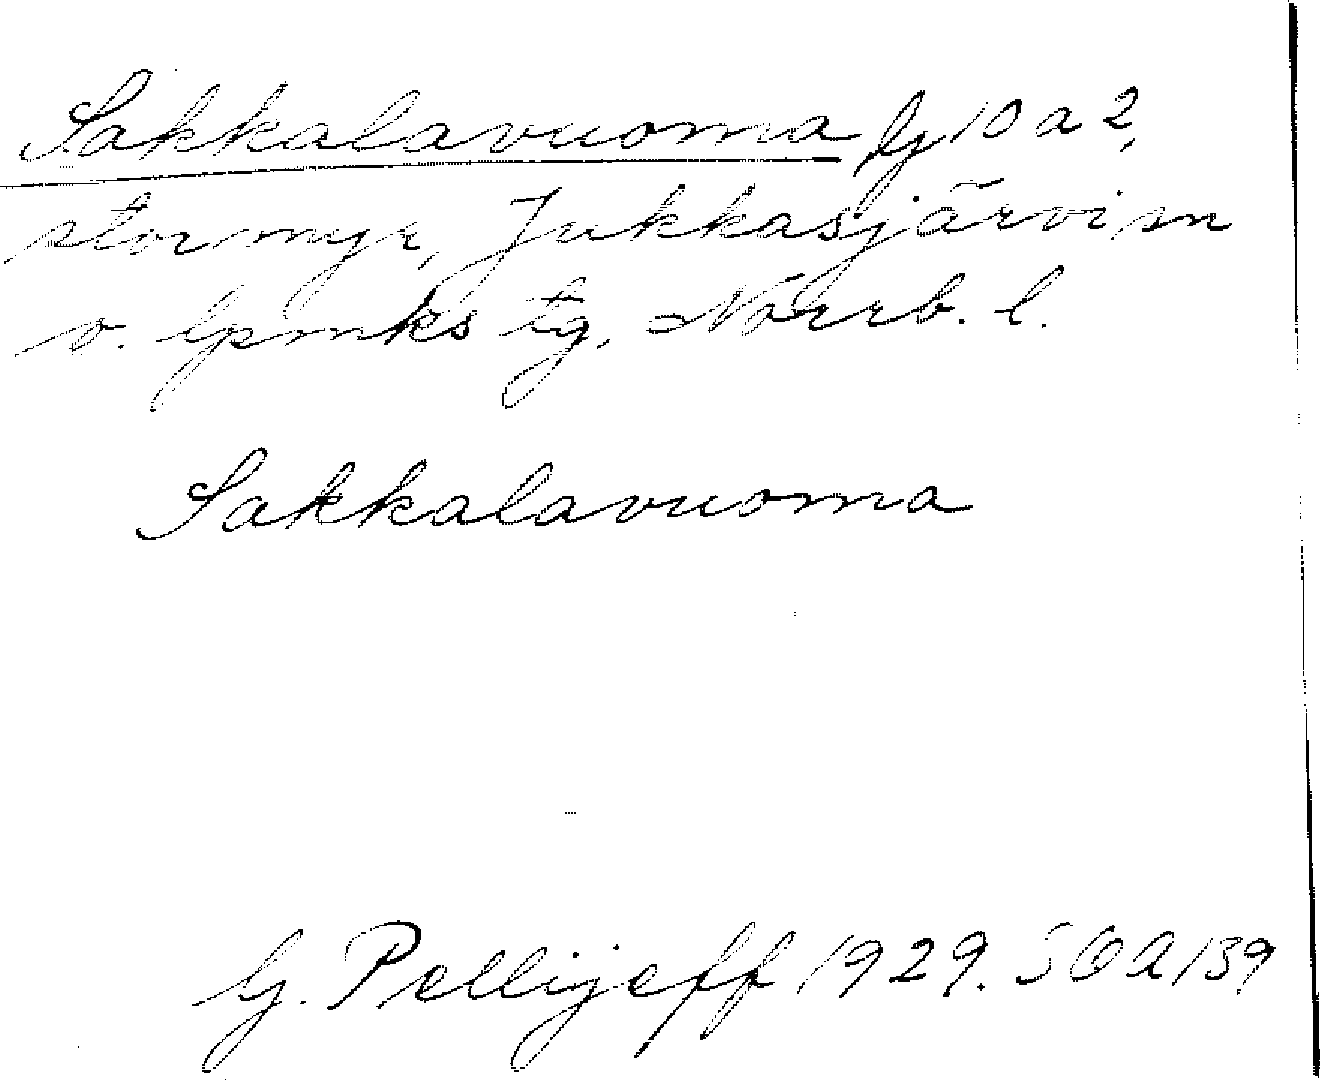 Sakkalavuoma fj 10 a 2,
stor myr, Jukkasjärvi sn
o. lpmks tg, Norrb. l.
Sakkalavuoma
G. Pellijeff 1929. SOA 139